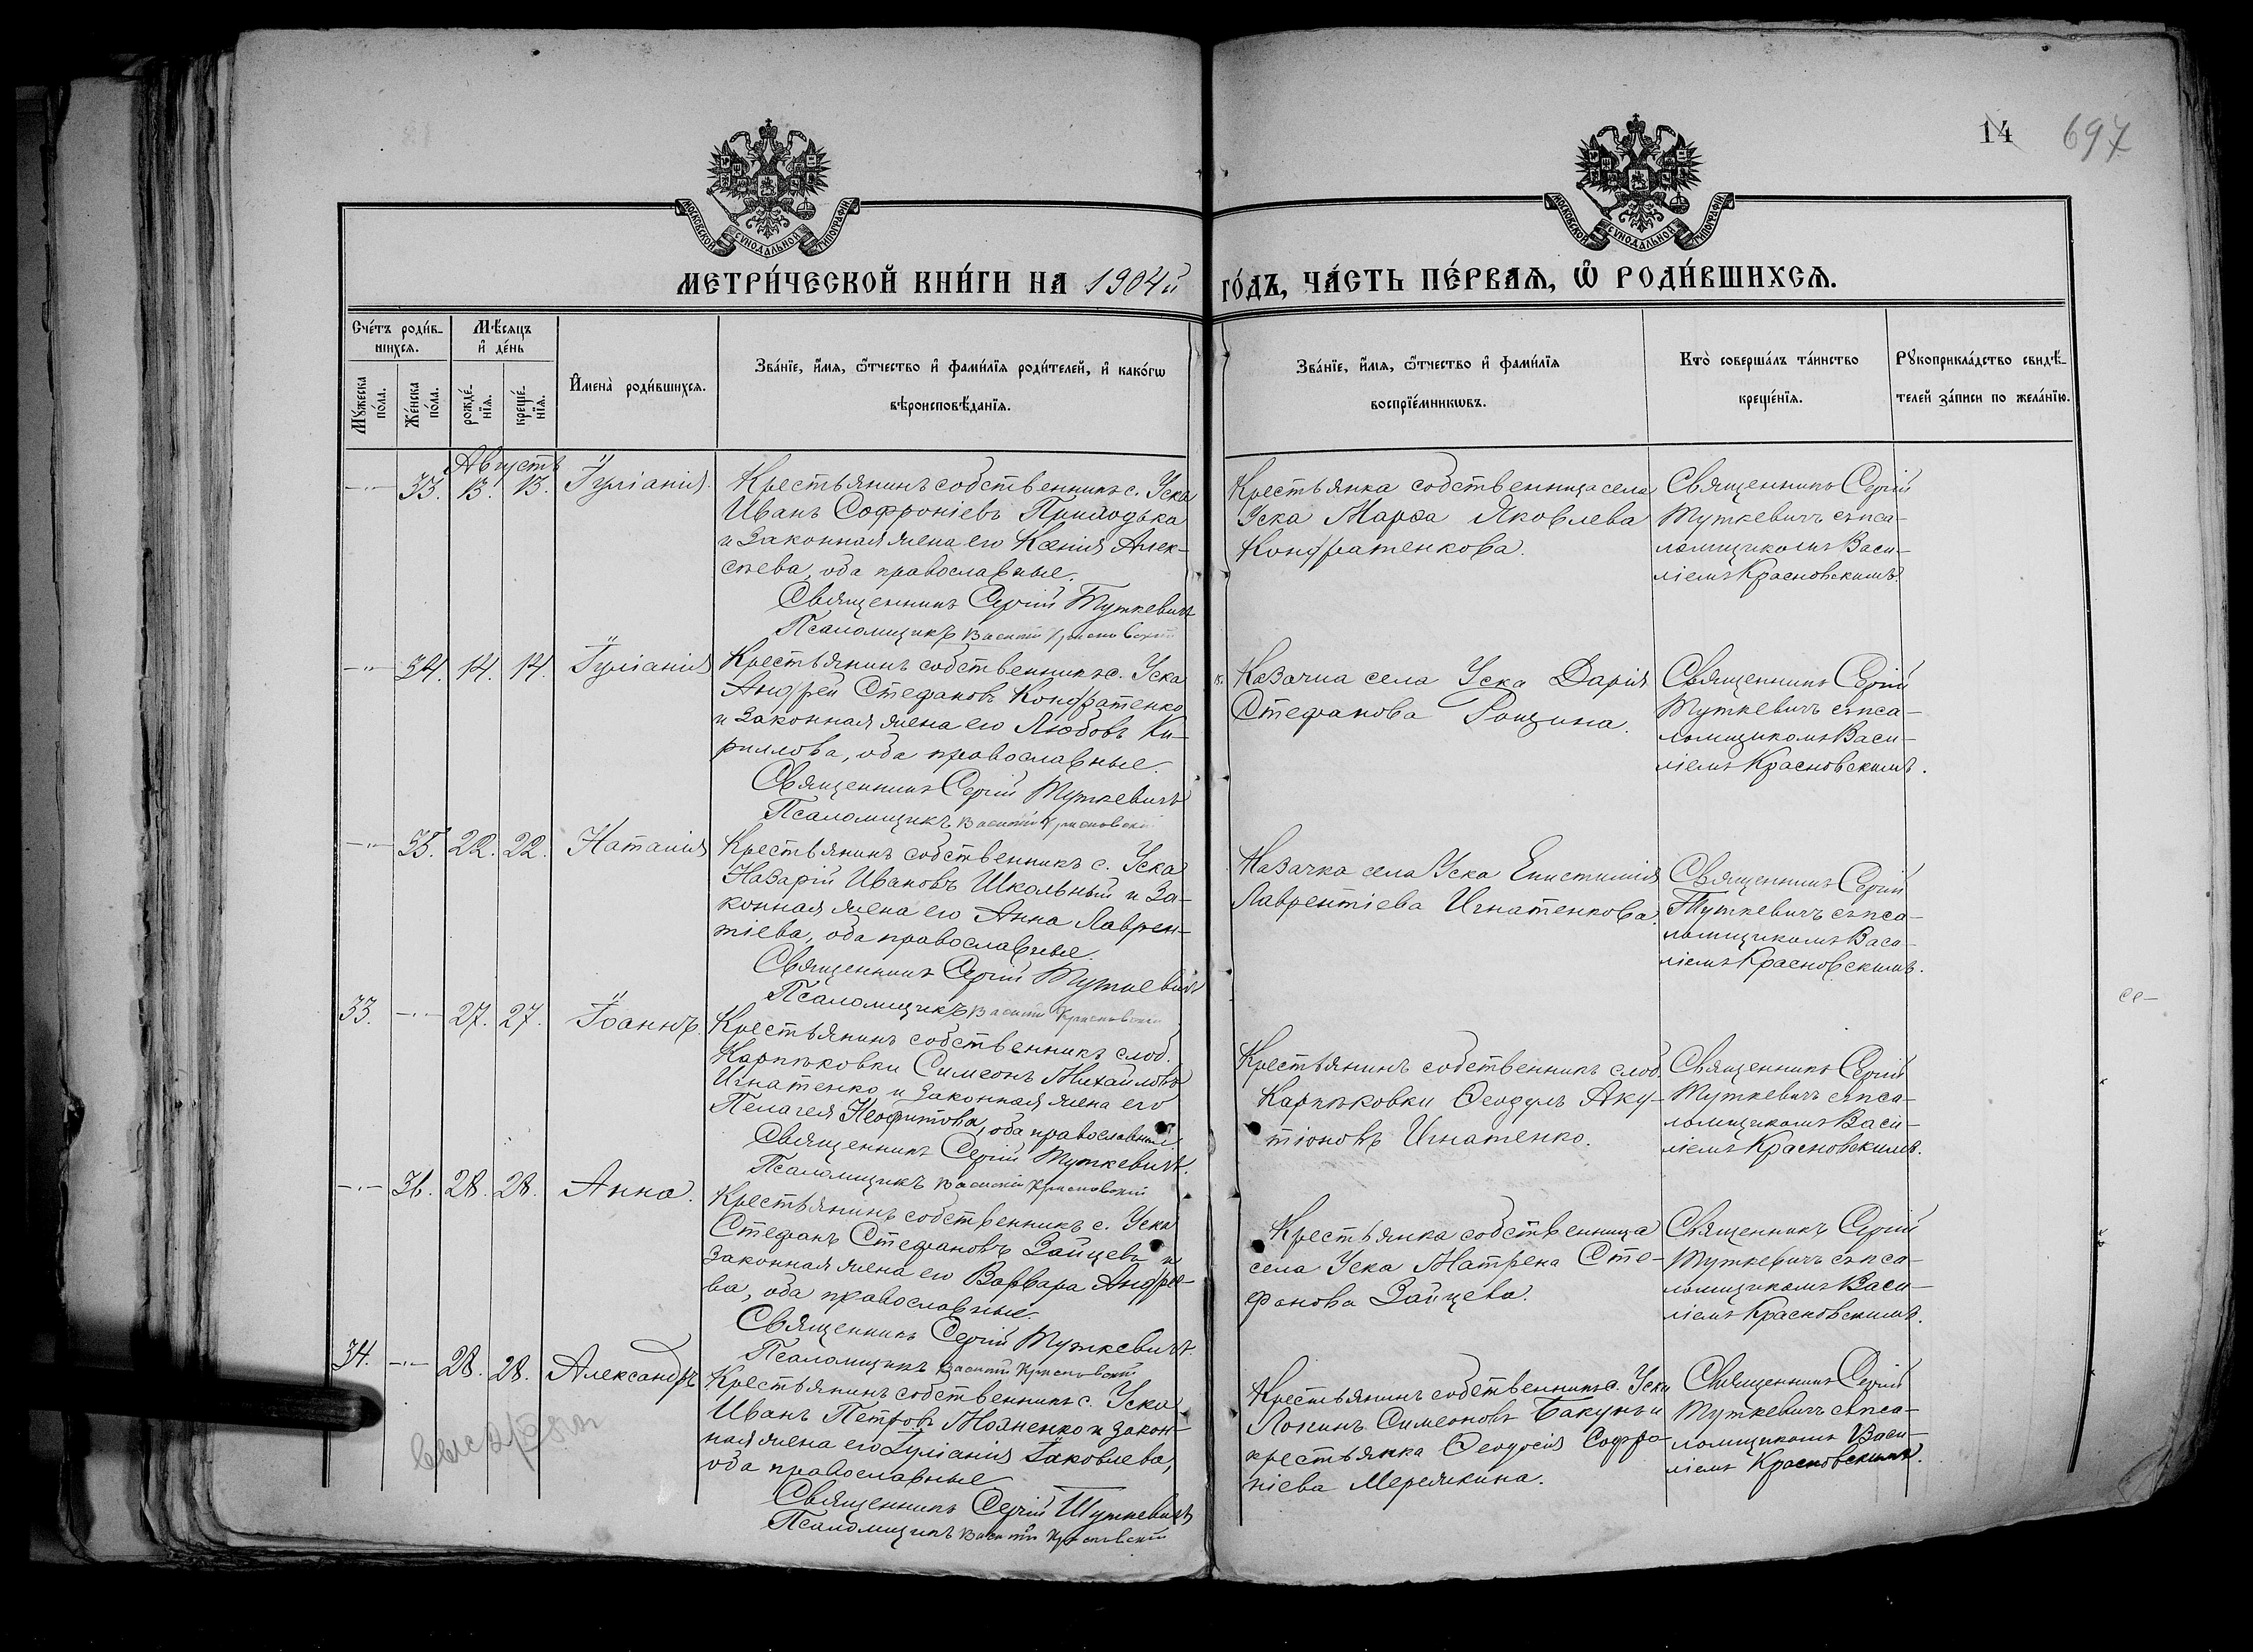 14 697
МОСКОВСКОЙ СѴНОДАЛЬНОЙ ТИПОГРАФІИ
МОСКОВСКОЙ СѴНОДАЛЬНОЙ ТИПОГРАФІИ
МЕТРИ́ЧЕСКОЙ КНИ́ГИ НА 1904й ГО́ДЪ, ЧА́СТЬ ПЕ́РВАѦ, Ѡ҆ РОДИ́ВШИХСѦ.
Сче́тъ роди́в-
шихсѧ.
Мꙋ́жеска по́ла.
Же́нска по́ла.
Мѣ́сѧцъ и҆ де́нь
рожде́-
нїѧ.
креще́-
нїѧ.
И҆мена̀ роди́вшихсѧ.
Зва́нїе, и҆́мѧ, ѻ҆́тчество и҆ фами́лїѧ роди́телей, и҆ како́гѡ
вѣроисповѣ́данїѧ.
Зва́нїе, и҆́мѧ, ѻ҆́тчество и҆ фами́лїѧ
воспрїе́мникѡвъ.
Кто̀ соверша́лъ та́инство
креще́нїѧ.
Рꙋкоприкла́дство свидѣ́-
телей за́писи по жела́нїю.
Августъ
—„— 33. 13. 13. Іуліанія.
Крестьянинъ собственникъ с. Уска
Иванъ Софроніевъ Приходька
и законная жена его Ксенія Алек-
сѣева, оба православные.
Священникъ Сергій Туткевичъ
Псаломщикъ Василій Красновскій
Крестьянка собственница села
Уска Марѳа Яковлева
Кондратенкова.
Священникъ Сергій
Туткевичъ съ пса-
ломщикомъ Васи-
ліемъ Красновскимъ.
—„— 34. 14. 14. Іуліанія
Крестьянинъ собственникъ с. Уска
Андрей Стефановъ Кондратенко
и законная жена его Любовь Ки-
риллова, оба православные.
Священникъ Сергій Туткевичъ
Псаломщикъ Василій Красновскій
Казачка села Уска Дарія
Стефанова Рощина.
Священникъ Сергій
Туткевичъ съ пса-
ломщикомъ Васи-
ліемъ Красновскимъ.
—„— 35. 22. 22. Наталія
Крестьянинъ собственникъ с. Уска
Назарій Ивановъ Школьный и за-
конная жена его Анна Лаврен-
тіева, оба православные.
Священникъ Сергій Туткевичъ
Псаломщикъ Василій Красновскій
Казачка села Уска Епистимія
Лаврентіева Игнатенкова.
Священникъ Сергій
Туткевичъ съ пса-
ломщикомъ Васи-
ліемъ Красновскимъ.
33. —„— 27. 27. Іоаннъ.
Крестьянинъ собственникъ слоб.
Карпѣковки Симеонъ Михайловъ
Игнатенко и законная жена его
Пелагея Неофитова, оба православные
Священникъ Сергій Туткевичъ.
Псаломщикъ Василій Красновскій
Крестьянинъ собственникъ слоб.
Карпѣковки Ѳеодулъ Аку-
тіоновъ Игнатенко.
Священникъ Сергій
Туткевичъ съ пса-
ломщикомъ Васи-
ліемъ Красновскимъ.
—„— 36. 28. 28. Анна.
Крестьянинъ собственникъ с. Уска
Стефанъ Стефановъ Зайцевъ и
законная жена его Варвара Андрее-
ва, оба православные.
Священникъ Сергій Туткевичъ.
Псаломщикъ Василій Красновскій
Крестьянка собственница
села Уска Матрена Сте-
фанова Зайцева.
Священникъ Сергій
Туткевичъ съ пса-
ломщикомъ Васи-
ліемъ Красновскимъ.
34. —„— 28. 28. Александръ
Крестьянинъ собственникъ с. Уска
Иванъ Петровъ и закон-
ная жена его Іуліанія Іаковлева,
оба православные
Священникъ Сергій Туткевичъ
Псаломщикъ Василій Красновскій
Крестьянинъ собственникъ с. Уска
Логинъ Симеоновъ Бакунъ и
крестьянка Ѳеодосія Софро-
ніева Мережкина.
Священникъ Сергій
Туткевичъ съ пса-
ломщикомъ Васи-
ліемъ Красновскимъ.